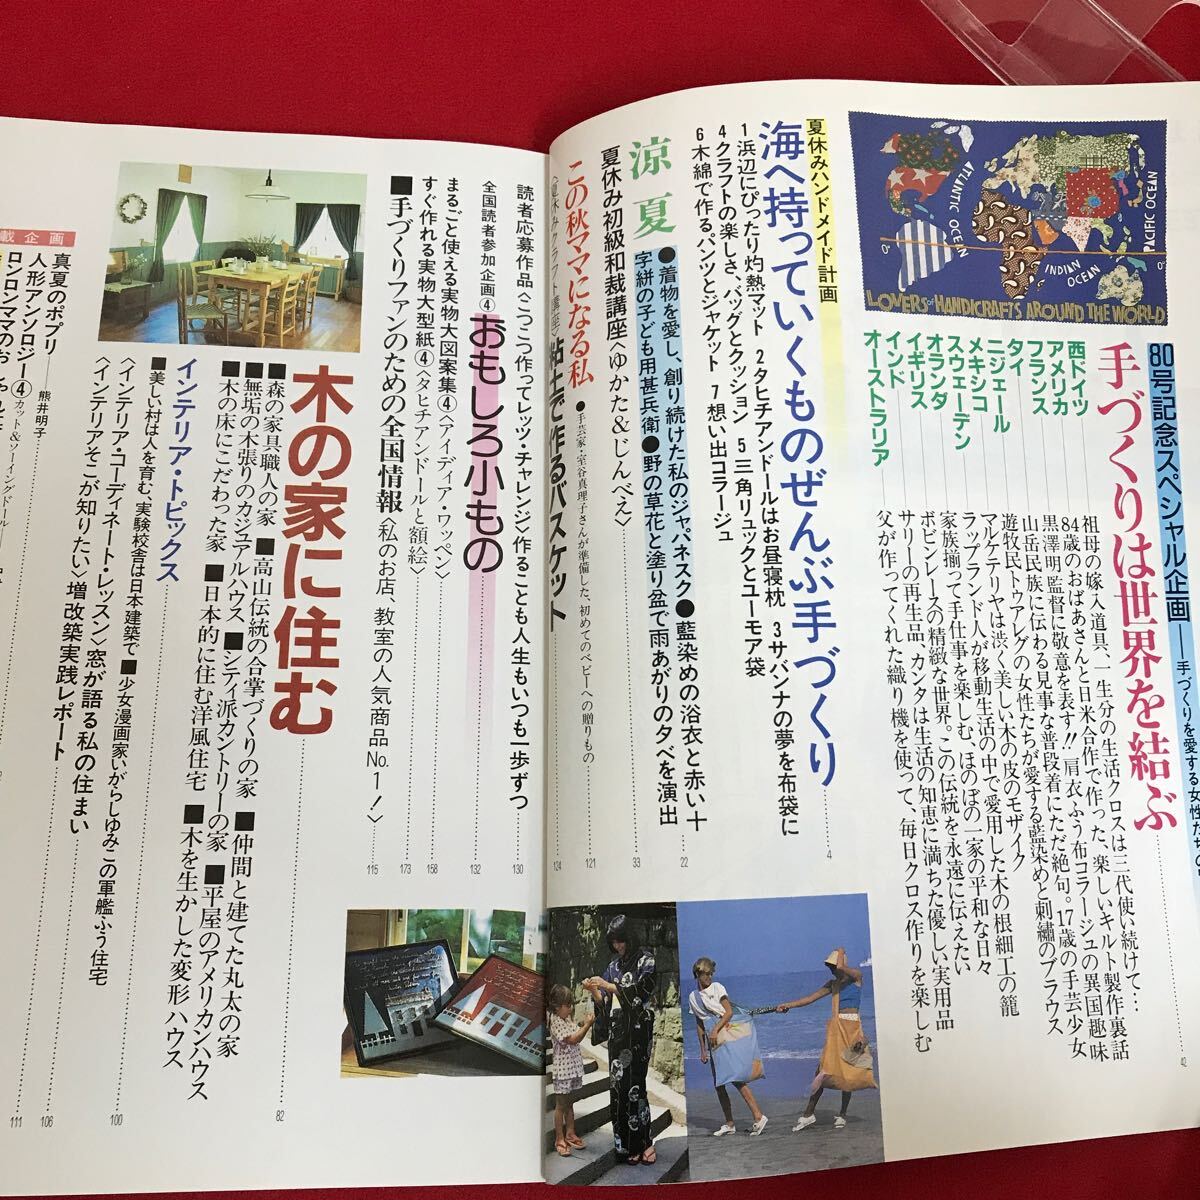 80号記念スペシャル企画——手づくりを愛する女性たちの
手づくりは世界を結ぶ
42
西ドイツ
祖母の嫁入道具、一生分の生活クロスは三代使い続けて…
アメリカ
84歳のおばあさんと日米合作で作った、楽しいキルト製作裏話
フランス
黒澤明監督に敬意を表す!!肩衣ふう布コラージュの異国趣味
タイ
山岳民族に伝わる見事な普段着にただ絶句。17歳の手芸少女
ニジェール
遊牧民トゥアレグの女性たちが愛する藍染めと刺繡のブラウス
メキシコ
マルケテリヤは渋く美しい木の皮のモザイク
スウェーデン
ラップランド人が移動生活の中で愛用した木の根細工の籠
オランダ
家族揃って手仕事を楽しむ、ほのぼの一家の平和な日々
イギリス
ボビンレースの精緻な世界。この伝統を永遠に伝えたい
インド
サリーの再生品、カンタは生活の知恵に満ちた優しい実用品
オーストラリア
父が作ってくれた織り機を使って、毎日クロス作りを楽しむ
ATLANTIC OCEAN
INDIAN OCEAN
PACIFIC OCEAN
LOVERS OF HANDICRAFTS AROUND THE WORLD
夏休みハンドメイド計画
海へ持っていくものぜんぶ手づくり
4
1 浜辺にぴったり灼熱マット 2 タヒチアンドールはお昼寝枕 3 サバンナの夢を布袋に
4 クラフトの楽しさ、バッグとクッション 5 三角リュックとユーモア袋
6 木綿で作る。パンツとジャケット 7 想い出コラージュ
涼夏
●着物を愛し、創り続けた私のジャパネスク●藍染めの浴衣と赤い十
22
字絣の子ども用甚兵衛●野の草花と塗り盆で雨あがりの夕べを演出
夏休み初級和裁講座〈ゆかた&じんべえ〉
33
この秋ママになる私
●手芸家・室谷真理子さんが準備した、初めてのベビーへの贈りもの
121
〈夏休みクラフト講座〉粘土で作るバスケット
124
読者応募作品〈こつこつ作ってレッツ・チャレンジ〉作ることも人生もいつも一歩ずつ
130
全国読者参加企画④
おもしろ小もの
132
まるごと使える実物大図案集④〈アイディア・ワッペン〉
158
すぐ作れる実物大型紙④〈タヒチアンドールと額絵〉
173
■手づくりファンのための全国情報〈私のお店、教室の人気商品No.1!〉
115
木の家に住む
82
■森の家具職人の家 ■高山伝統の合掌づくりの家 ■仲間と建てた丸太の家
■無垢の木張りのカジュアルハウス ■シティ派カントリーの家 ■平屋のアメリカンハウス
■木の床にこだわった家 ■日本的に住む洋風住宅 ■木を生かした変形ハウス
インテリア・トピックス
■美しい村は人を育む、実験校舎は日本建築で ■少女漫画家いがらしゆみこの軍艦ふう住宅
〈インテリア・コーディネート・レッスン〉窓が語る私の住まい
100
〈インテリアそこが知りたい〉増改築実践レポート
載企画
真夏のポプリ——熊井明子
106
人形アンソロジー④カット&ソーイングドール
111
ロンロンママの